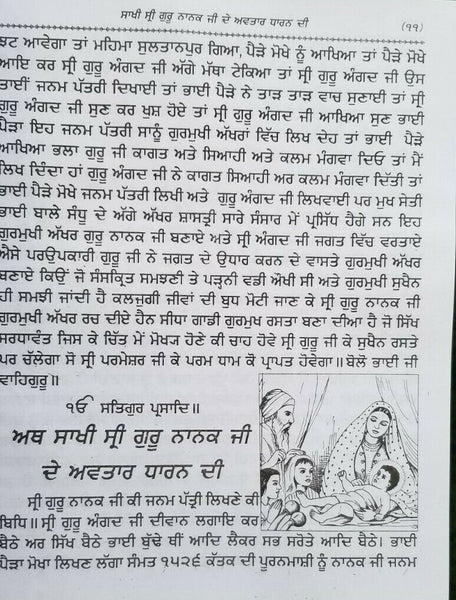 ਸਾਖੀ ਸ੍ਰੀ ਗੁਰੂ ਨਾਨਕ ਜੀ ਦੇ ਅਵਤਾਰ ਧਾਰਨ ਦੀ (੧੧)
ਝਟ ਆਵੇਗਾ ਤਾਂ ਮਹਿਮਾ ਸੁਲਤਾਨਪੁਰ ਗਿਆ, ਪੈੜੇ ਮੋਖੇ ਨੂੰ ਆਖਿਆ ਤਾਂ ਪੈੜੇ ਮੋਖੇ
ਆਇ ਕਰ ਸ੍ਰੀ ਗੁਰੂ ਅੰਗਦ ਜੀ ਅੱਗੇ ਮੱਥਾ ਟੇਕਿਆ ਤਾਂ ਸ੍ਰੀ ਗੁਰੂ ਅੰਗਦ ਜੀ ਉਸ
ਤਾਈਂ ਜਨਮ ਪੱਤਰੀ ਦਿਖਾਈ ਤਾਂ ਭਾਈ ਪੈੜੇ ਨੇ ਤਾੜ ਤਾੜ ਵਾਚ ਸੁਣਾਈ ਤਾਂ ਸ੍ਰੀ
ਗੁਰੂ ਅੰਗਦ ਜੀ ਸੁਣ ਕਰ ਖੁਸ਼ ਹੋਏ ਤਾਂ ਸ੍ਰੀ ਗੁਰੂ ਅੰਗਦ ਜੀ ਆਖਿਆ ਸੁਣ ਭਾਈ
ਪੈੜਾ ਇਹ ਜਨਮ ਪੱਤਰੀ ਸਾਨੂੰ ਗੁਰਮੁਖੀ ਅੱਖਰਾਂ ਵਿੱਚ ਲਿਖ ਦੇਹ ਤਾਂ ਭਾਈ ਪੈੜੇ
ਆਖਿਆ ਭਲਾ ਗੁਰੂ ਜੀ ਕਾਗਤ ਅਤੇ ਸਿਆਹੀ ਅਤੇ ਕਲਮ ਮੰਗਵਾ ਦਿਓ ਤਾਂ ਮੈਂ
ਲਿਖ ਦਿੰਦਾ ਹਾਂ ਗੁਰੂ ਅੰਗਦ ਜੀ ਨੇ ਕਾਗਤ ਸਿਆਹੀ ਅਰ ਕਲਮ ਮੰਗਵਾ ਦਿੱਤੀ ਤਾਂ
ਭਾਈ ਪੈੜੇ ਮੋਖੇ ਜਨਮ ਪੱਤਰੀ ਲਿਖੀ ਅਤੇ ਗੁਰੂ ਅੰਗਦ ਜੀ ਲਿਖਵਾਈ ਪਰ ਮੁਖ ਸੇਤੀ
ਭਾਈ ਬਾਲੇ ਸੰਧੂ ਦੇ ਅੱਗੇ ਅੱਖਰ ਸ਼ਾਸਤ੍ਰੀ ਸਾਰੇ ਸੰਸਾਰ ਮੇਂ ਪ੍ਰਸਿੱਧ ਹੈਗੇ ਸਨ ਇਹ
ਗੁਰਮੁਖੀ ਅੱਖਰ ਗੁਰੂ ਨਾਨਕ ਜੀ ਬਣਾਏ ਅਤੇ ਸ੍ਰੀ ਅੰਗਦ ਜੀ ਜਗਤ ਵਿੱਚ ਵਰਤਾਏ
ਐਸੇ ਪਰਉਪਕਾਰੀ ਗੁਰੂ ਜੀ ਨੇ ਜਗਤ ਦੇ ਉਧਾਰ ਕਰਨ ਦੇ ਵਾਸਤੇ ਗੁਰਮੁਖੀ ਅੱਖਰ
ਬਣਾਏ ਕਿਉਂ ਜੋ ਸੰਸਕ੍ਰਿਤ ਸਮਝਣੀ ਤੇ ਪੜ੍ਹਨੀ ਵਡੀ ਔਖੀ ਸੀ ਅਤੇ ਗੁਰਮੁਖੀ ਸੁਖੈਨ
ਹੀ ਸਮਝੀ ਜਾਂਦੀ ਹੈ ਕਲਜੁਗੀ ਜੀਵਾਂ ਦੀ ਬੁਧ ਮੋਟੀ ਜਾਣ ਕੇ ਸ੍ਰੀ ਗੁਰੂ ਨਾਨਕ ਜੀ
ਗੁਰਮੁਖੀ ਅੱਖਰ ਰਚ ਦੀਏ ਹੈਨ ਸੀਧਾ ਗਾਡੀ ਗੁਰਮੁਖ ਰਸਤਾ ਬਣਾ ਦੀਆ ਹੈ ਜੋ ਸਿੱਖ
ਸਰਧਾਵੰਤ ਜਿਸ ਕੇ ਚਿੱਤ ਮੇਂ ਮੋਖ੍ਯ ਹੋਣੇ ਕੀ ਚਾਹ ਹੋਵੇ ਸ੍ਰੀ ਗੁਰੂ ਜੀ ਕੇ ਸੁਖੈਨ ਰਸਤੇ
ਪਰ ਚੱਲੇਗਾ ਸੋ ਸ੍ਰੀ ਪਰਮੇਸ਼ਰ ਜੀ ਕੇ ਪਰਮ ਧਾਮ ਕੋ ਪ੍ਰਾਪਤ ਹੋਵੇਗਾ॥ ਬੋਲੋ ਭਾਈ ਜੀ
ਵਾਹਿਗੁਰੂ॥
ੴ ਸਤਿਗੁਰ ਪ੍ਰਸਾਦਿ॥
ਅਥ ਸਾਖੀ ਸ੍ਰੀ ਗੁਰੂ ਨਾਨਕ ਜੀ
ਦੇ ਅਵਤਾਰ ਧਾਰਨ ਦੀ
ਸ੍ਰੀ ਗੁਰੂ ਨਾਨਕ ਜੀ ਕੀ ਜਨਮ ਪੱਤ੍ਰੀ ਲਿਖਣੇ ਕੀ
ਬਿਧਿ॥ ਸ੍ਰੀ ਗੁਰੂ ਅੰਗਦ ਜੀ ਦੀਵਾਨ ਲਗਾਇ ਕਰ
ਬੈਠੇ ਅਰ ਸਿੱਖ ਬੈਠੇ ਭਾਈ ਬੁੱਢੇ ਥੀਂ ਆਦਿ ਲੈਕਰ ਸਭ ਸਰੋਤੇ ਆਦਿ ਬੈਠੇ। ਭਾਈ
ਪੈੜਾ ਮੋਖਾ ਲਿਖਣ ਲੱਗਾ ਸੰਮਤ ੧੫੨੬ ਕੱਤਕ ਦੀ ਪੂਰਨਮਾਸ਼ੀ ਨੂੰ ਨਾਨਕ ਜੀ ਜਨਮ